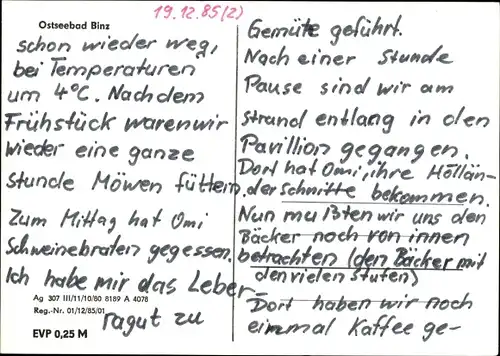 19.12.85(2)
Ostseebad Binz
schon wieder weg,
bei Temperaturen
um 4°C. Nachdem
Frühstück waren wir
wieder eine ganze
Stunde Möwen füttern.
Zum Mittag hat Omi
Schweinebraten gegessen.
Ich habe mir das Leber-
ragut zu
Ag 307 III/11/10/80 8189 A 4078
Reg.-Nr. 01/12/85/01
EVP 0,25 M
Gemüte geführt.
Nach einer Stunde
Pause sind wir am
Strand entlang in den
Pavillion gegangen.
Dort hat Omi, ihre Hollän-
der schnitte bekommen.
Nun mußten wir uns den
Bäcker noch von innen
betrachten (den Bäcker mit
den vielen Stufen)
Dort haben wir noch
einmal Kaffee ge-